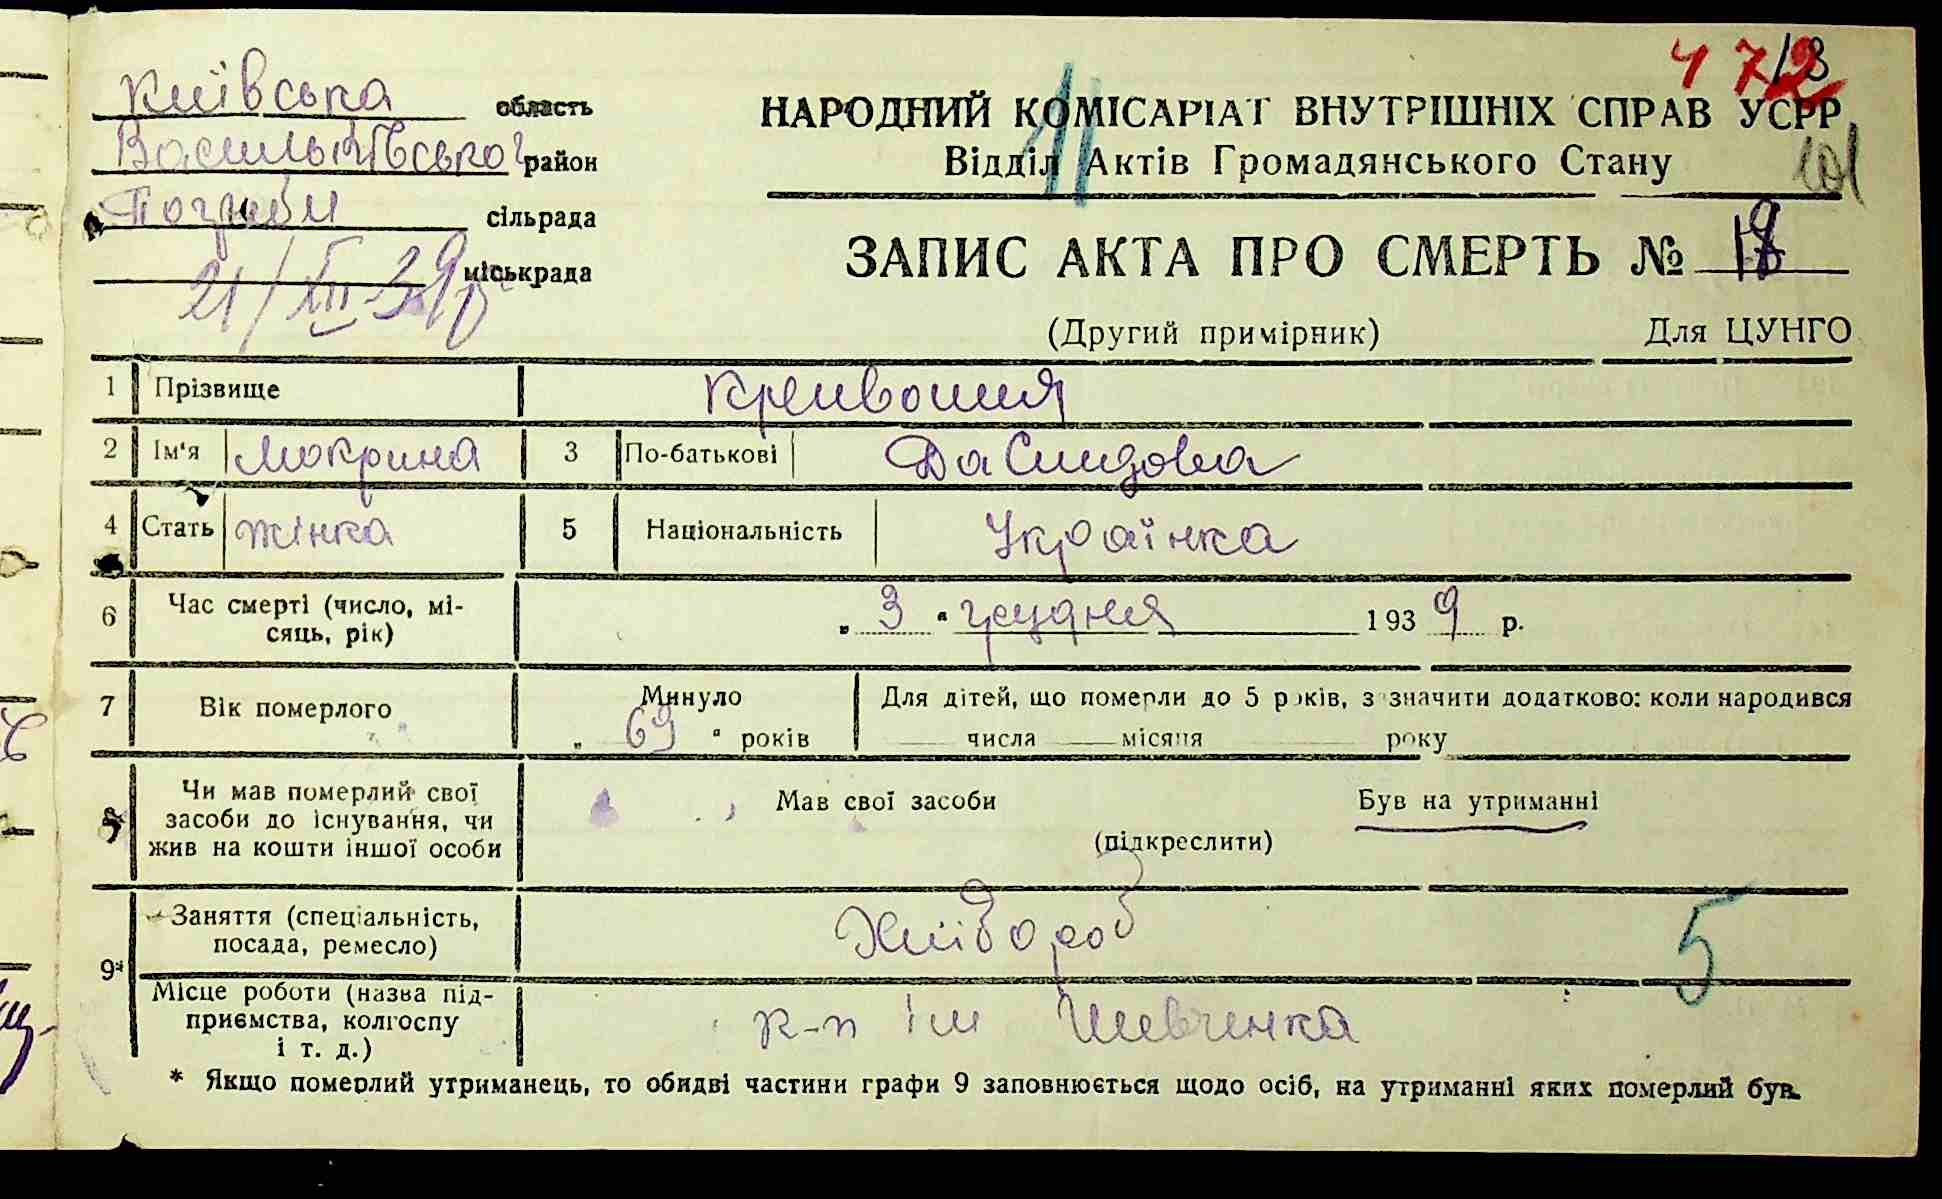 Київська область
Васильківського район
Погреби сільрада
міськрада
21/XII-39р
472
13
НАРОДНИЙ КОМІСАРІАТ ВНУТРІШНІХ СПРАВ УСРР
Відділ Актів Громадянського Стану
101
11
ЗАПИС АКТА ПРО СМЕРТЬ № 18
(Другий примірник) Для ЦУНГО
1 Прізвище Кривошия
2 Ім'я Мокрина 3 По-батькові Давидовна
4 Стать жінка 5 Національність Українка
6 Час смерті (число, мі-
сяць, рік) „ 3 “ грудня 1939 р.
7 Вік померлого Минуло
„ 69 “ років
Для дітей, що померли до 5 років, зазначити додатково: коли народився
числа місяця року
Чи мав померлий свої
засоби до існування, чи
жив на кошти іншої особи
Мав свої засоби Був на утриманні
(підкреслити)
9* Заняття (спеціальність,
посада, ремесло) Хлібороб
5
Місце роботи (назва під-
приємства, колгоспу
і т. д.) к-п ім Шевченка
* Якщо померлий утриманець, то обидві частини графи 9 заповнюється щодо осіб, на утриманні яких померлий був.